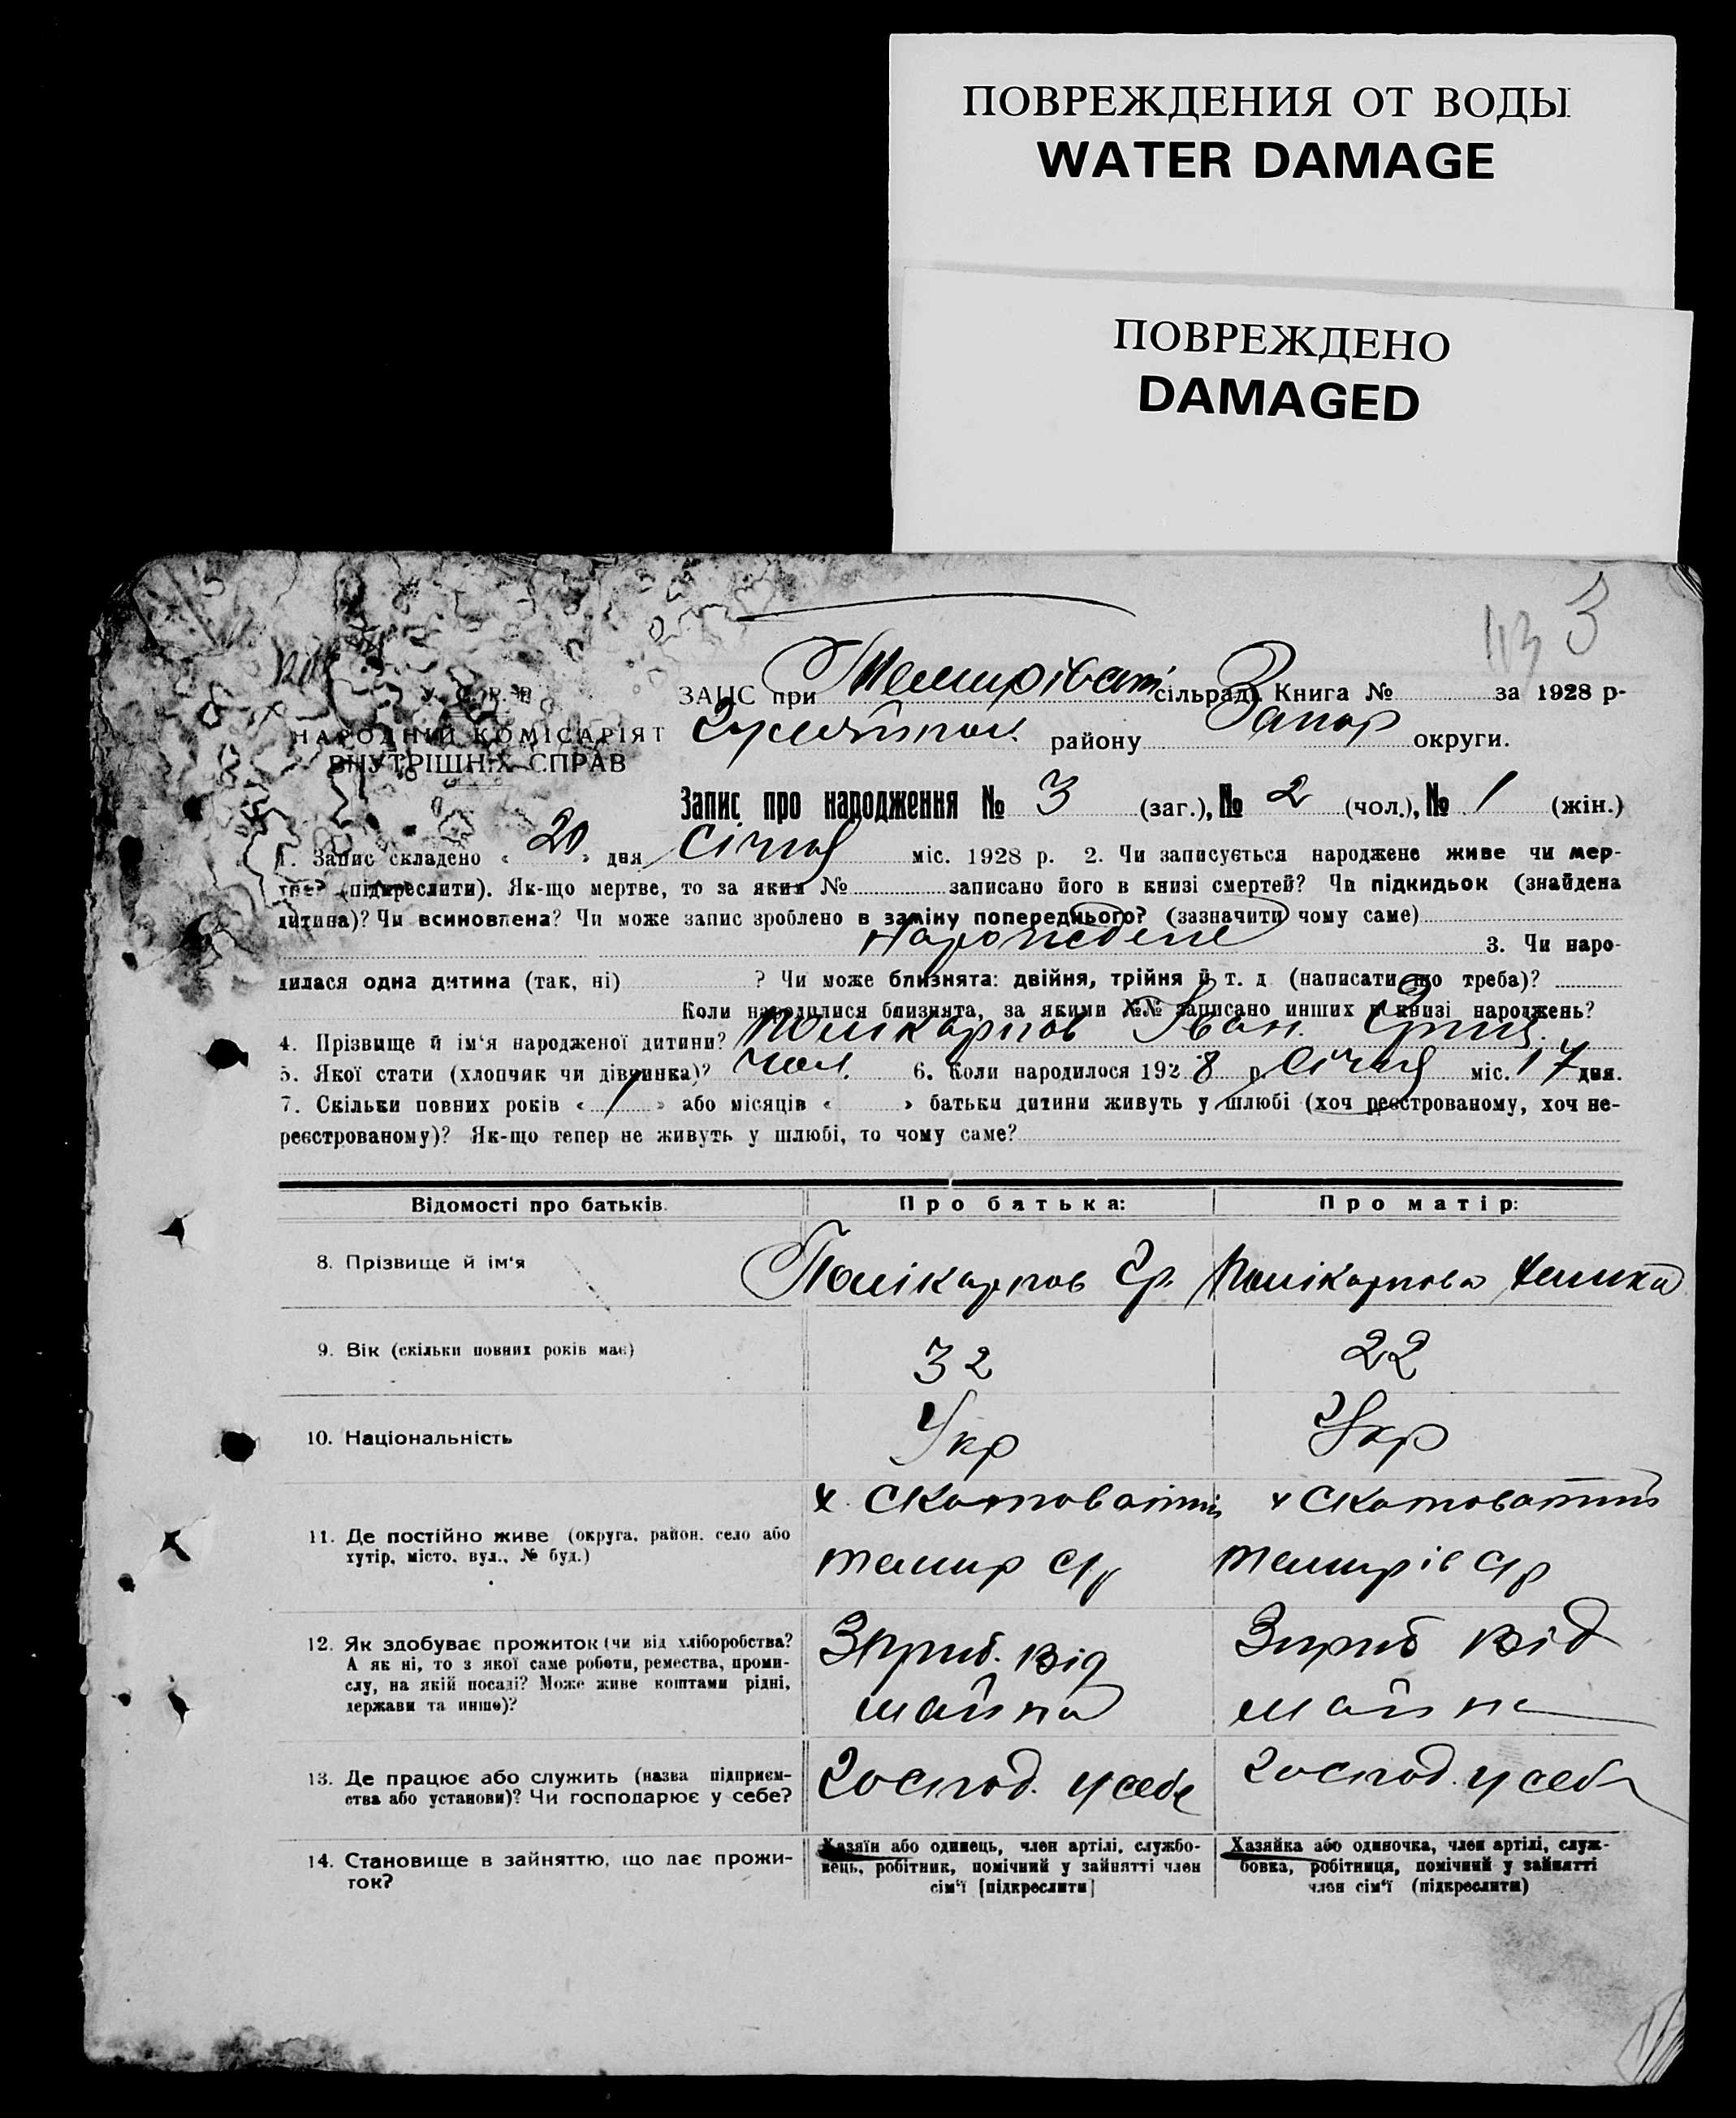 ПОВРЕЖДЕНИЯ ОТ ВОДЫ
WATER DAMAGE
ПОВРЕЖДЕНО
DAMAGED
113 3
У. С. Р. Р.
НАРОДНІЙ КОМІСАРІЯТ
ВНУТРІШНІХ СПРАВ
ЗАЦС при Темиріват сільраді. Книга № за 1928 р-
Гуляйпол. району Запор округи.
Запис про народження № 3 (заг.), № 2 (чол.), № 1 (жін.)
1. Запис складено « 20 » дня Січня міс. 1928 р. 2. Чи записується народжене живе чи мер-
тве? (підкреслити). Як-що мертве, то за яким № записано його в книзі смертей? Чи підкидьок (знайдена
дитина)? Чи всиновлена? Чи може запис зроблено в заміну попереднього? (зазначити чому саме)
народжене 3. Чи наро-
дилася одна дитина (так, ні) ? Чи може близнята: двійня, трійня й т. д (написати що треба)?
Коли народилися близнята, за якими №№ записано инших в книзі народжень?
4. Прізвище й ім'я народженої дитини? Полікарпов Іван
5. Якої стати (хлопчик чи дівчинка)? чол. 6. Коли народилося 1928 р. Січня міс. 17 дня.
7. Скільки повних років « 1 » або місяців « » батьки дитини живуть у шлюбі (хоч реєстрованому, хоч не-
реєстрованому)? Як-що тепер не живуть у шлюбі, то чому саме?
Відомості про батьків. Про батька: Про матір:
8. Прізвище й ім'я Полікарпов Гр. Полікарпова
9. Вік (скільки повних років має) 32 22
10. Національність Укр Укр
х. Скотоватий х Скотоватий
11. Де постійно живе (округа, район, село або
хутір, місто, вул., № буд.) Темир С/р Темирів С/р
12. Як здобуває прожиток (чи від хліборобства?
А як ні, то з якої саме роботи, ремества, проми-
слу, на якій посаді? Може живе коштами рідні,
держави та инше)?
Зприб. від Зприб від
майна майна
13. Де працює або служить (назва підприєм-
ства або установи)? Чи господарює у себе?
Господ. у себе Господ. у себе
14. Становище в зайняттю, що дає прожи-
ток?
Хазяїн або одинець, член артілі, службо-
вець, робітник, помічний у зайнятті член
сім'ї [підкреслити]
Хазяйка або одиночка, член артілі, служ-
бовка, робітниця, помічний у зайнятті
член сім'ї (підкреслити)